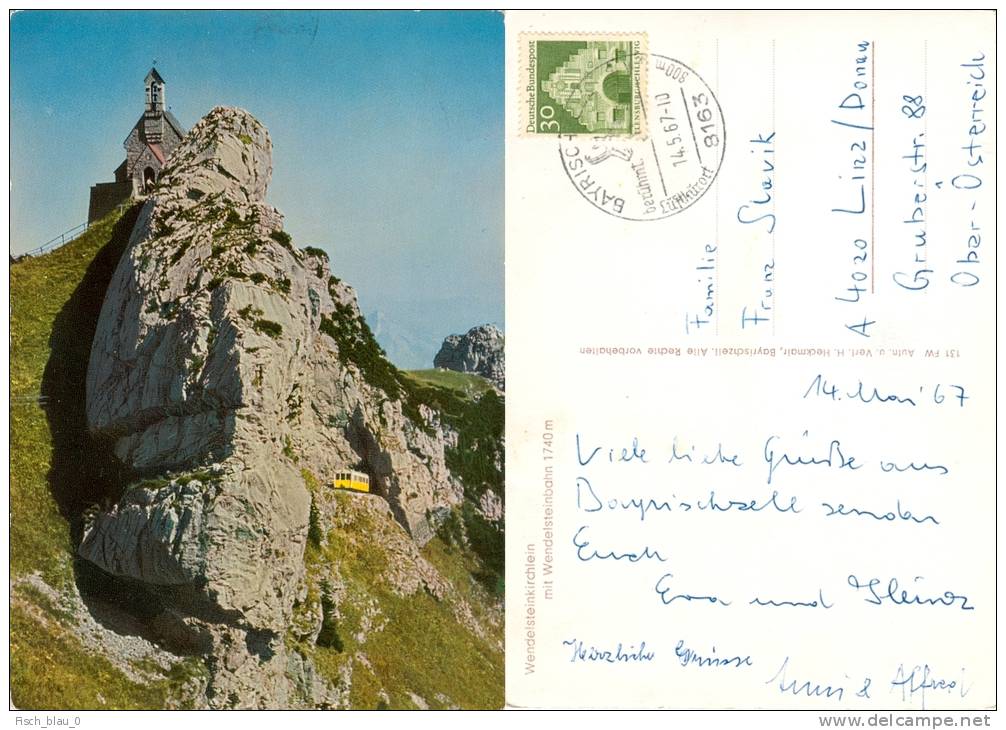 Deutsche Bundespost
30
FLENSBURG/SCHLESWIG
BAYRISCH
800 m
8163
14.5.67-10
berühmt.
Luftkurort
Familie
Franz Slavik
A 4020 Linz/Donau
Gruberstr. 88
Ober-Österreich
131 FW Aufn. u. Verl. H. Heckmair, Bayrischzell. Alle Rechte vorbehalten
Wendelsteinkirchlein
mit Wendelsteinbahn 1740 m
14. Mai 67
Viele liebe Grüße aus
Bayrischzell senden
Euch
Eva und Heinz
Herzliche Grüsse
Anni & Alfred
Fisch_blau_0
www.delcampe.net